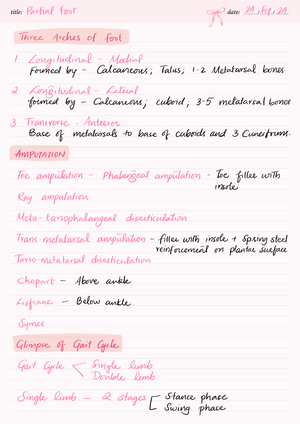 title: Partial Foot
date: 2A, Feb, 2A
Three Arches of foot
1 Longitudinal - Medial
formed by - Calcaneous, Talus, 1-2 Metatarsal bones.
2 Longitudinal - Lateral
formed by - Calcaneous, cuboid, 3-5 metatarsal bones
3 Transverse - Anterior
Base of metatarsals to base of cuboids and 3 Cuneiforms.
AMPUTATION
Toe amputation - Phalangeal amputation - Toe filler with
insole
Ray amputation
Meta-tarsophalangeal disarticulation
Trans metatarsal amputation - filler with insole + Spring steel
reinforcement on plantar surface
Tarso-metatarsal disarticulation
Chopart - Above ankle
Lisfranc - Below ankle
Symes
Glimpse of Gait Cycle
Gait Cycle < Single limb
Double limb
Single limb - 2 stages [ Stance phase
Swing phase